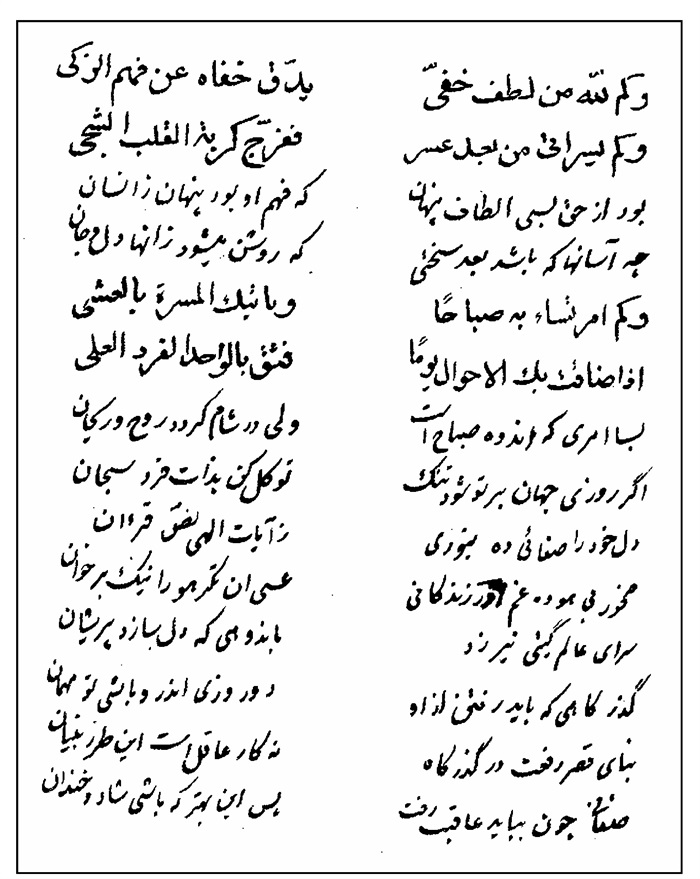 وکم لله من لطف خفیّ
یدّق خفاه عن فهم الزکی
وکم یسر اتی من بعد عسر
ففرّج کربة القلب الشجی
بود از حق بسی الطاف پنهان
که فهم او بود پنهان ز انسان
چه آسانها که باشد بعد سختی
که روشن میشود زانها دل و جان
وکم امر تساء به صباحًا
وتاتیک المسرة بالعشی
اذا ضاقت بک الاحوال یومًا
فثق بالواحد الفرد العلی
بسا امری که اندوه صباح است
ولی در شام گردد روح و ریحان
اگر روزی جهان بر تو شود تنگ
توکل کن بذات فرد سبحان
دل خود را صفائی ده
ز آیات الهی نص قرءان
مخور بی هوده غم در زندگانی
عسی ان تکرهو را نیک بر خوان
سرای عالم گیتی نیرزد
باندوهی که دل سازد پریشان
گذرگاهی که باید رفتن از او
دو روزی اندر و باشی تو مهمان
بنای قصر رفعت در گذرگاه
نه کار عاقل است این طرز بنیان
صفائی چون بباید عاقبت رفت
پس این بهتر که باشی شاد و خندان